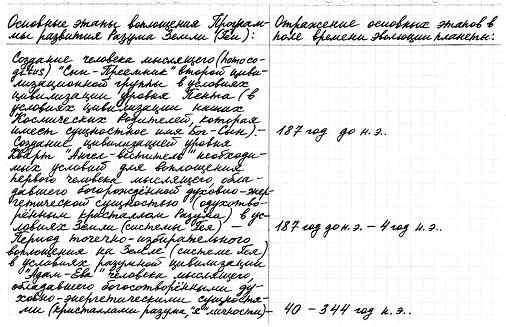 Основные этапы воплощения Програм-
мы развития Разума Земли (Геи):
Отражение основных этапов в
поле времени эволюции планеты:
Создание человека мыслящего (homo co-
gitus) "Сын-Преемник" второй циви-
лизационной группы в условиях
цивилизации уровня Пента (в
условиях цивилизации наших
Космических Родителей, которая
имеет сущностное имя Бог-Сын).-
187 год до н.э..
Создание цивилизацией уровня
Кварты "Ангел-веститель" необходи-
мых условий для воплощения
первого человека мыслящего, обла-
давшего богорождённой духовно-энер-
гетической сущностью (одухотво-
рённым кристаллом Разума) в ус-
ловиях Земли (системы Гея) —
187 год до н.э. – 4 год н.э..
Период точечно-избирательного
воплощения на Земле (системе Гея)
в условиях разумной цивилизации
"Адам-Ева" человека мыслящего,
обладавшего богосотворёнными ду-
ховно-энергетическими сущностя-
ми (кристаллами разума, "Я" личности)-
40 – 344 год н.э..